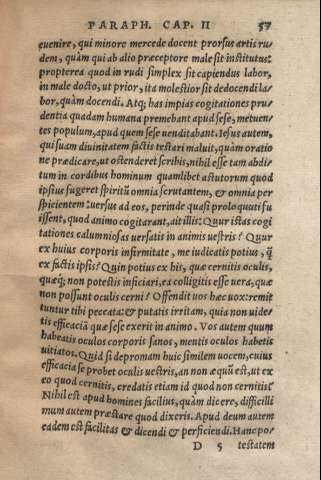 PARAPH. CAP. II 57
euenire, qui minore mercede docent prorsus artis ru-
dem, quàm qui ab alio præceptore male sit institutus:
propterea quod in rudi simplex sit capiendus labor,
in male docto, ut prior, ita molestior sit dedocendi la-
bor, quàm docendi. Atq; has impias cogitationes pru-
dentia quadam humana premebant apud sese, metuen-
tes populum, apud quem sese uenditabant. Iesus autem,
qui suam diuinitatem factis testari maluit, quàm oratio
ne prædicare, ut ostenderet scribis, nihil esse tam abdi-
tum in cordibus hominum quamlibet astutorum quod
ipsius fugeret spiritũ omnia scrutantem, & omnia per
spicientem: uersus ad eos, perinde quasi proloquuti fu
issent, quod animo cogitarant, ait illis: Quur istas cogi
tationes calumniosas uersatis in animis uestris? Quur
ex huius corporis infirmitate, me iudicatis potius, q̃
ex factis ipsis? Quin potius ex his, quæ cernitis oculis,
quæq; non potestis inficiari, ea colligitis esse uera, quæ
non possunt oculis cerni? Offendit uos hæc uox: remit
tuntur tibi peccata: & putatis irritam, quia non uide-
tis efficaciã quæ sese exerit in animo. Vos autem quum
habeatis oculos corporis sanos, mentis oculos habetis
uitiatos. Quid si depromam huic similem uocem, cuius
efficacia se probet oculis uestris, an non æquũ est, ut ex
eo quod cernitis, credatis etiam id quod non cernitis?
Nihil est apud homines facilius, quàm dicere, difficilli
mum autem præstare quod dixeris. Apud deum autem
eadem est facilitas & dicendi & perficiendi. Hanc po-
D 5 testatem